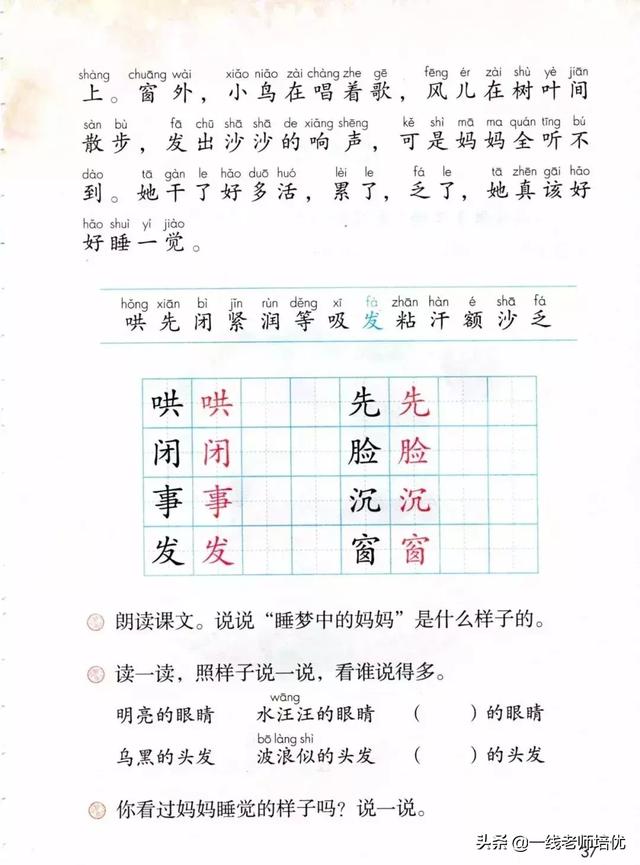 shàng chuāng wài xiǎo niǎo zài chàng zhe gē fēng ér zài shù yè jiān
上。窗外，小鸟在唱着歌，风儿在树叶间
sàn bù fā chū shā shā de xiǎng shēng kě shì mā ma quán tīng bú
散步，发出沙沙的响声，可是妈妈全听不
dào tā gàn le hǎo duō huó lèi le fá le tā zhēn gāi hǎo
到。她干了好多活，累了，乏了，她真该好
hǎo shuì yí jiào
好睡一觉。
hǒng xiān bì jǐn rùn děng xī fà zhān hàn é shā fá
哄先闭紧润等吸发粘汗额沙乏
哄 哄 先 先
闭 闭 脸 脸
事 事 沉 沉
发 发 窗 窗
朗读课文。说说“睡梦中的妈妈”是什么样子的。
读一读，照样子说一说，看谁说得多。
wāng
明亮的眼睛 水汪汪的眼睛 （ ）的眼睛
bō làng shì
乌黑的头发 波浪似的头发 （ ）的头发
你看过妈妈睡觉的样子吗？说一说。
37
头条 @一线老师培优